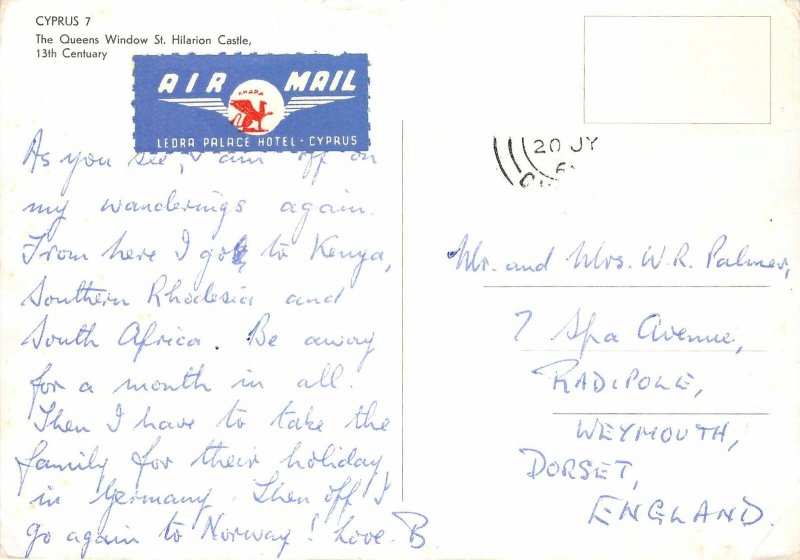 CYPRUS 7
The Queens Window St. Hilarion Castle,
13th Centuary
AIR MAIL
LEDRA PALACE HOTEL - CYPRUS
20 JY
As you see, I am off on
my wanderings again.
From here I go to Kenya,
Southern Rhodesia and
South Africa. Be away
for a month in all.
Then I have to take the
family for their holiday
in Germany. Then off I
go again to Norway! Love. B
Mr. and Mrs. W.R. Palmer,
7 Spa Avenue,
RADIPOLE,
WEYMOUTH,
DORSET,
ENGLAND.